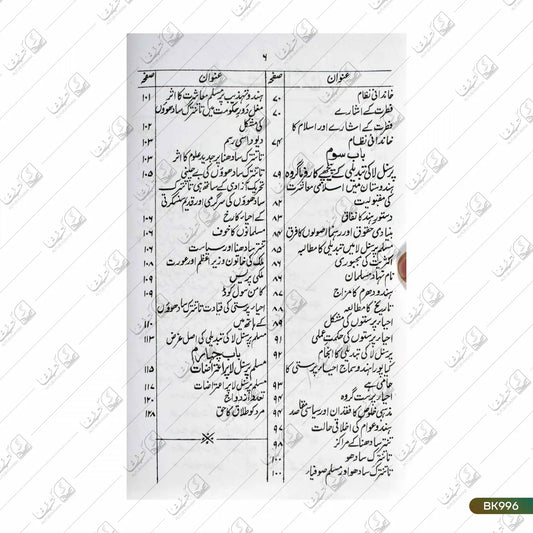 ۶
عنوان صفحہ
خاندانی نظام ۷۰
فطرت کے اشارے ۷۰
فطرت کے اشارے اور اسلام کا
خاندانی نظام ۷۴
باب سوم
پرسنل لا کی تبدیلی کے پیچھے کارفرما گروہ ۷۹
ہندوستان میں اسلامی معاشرت
کی مقبولیت ۸۲
دستور ہند کا نفاق ۸۳
بنیادی حقوق اور رہنما اصولوں کا فرق ۸۴
مسلم پرسنل لا میں تبدیلی کا مطالبہ ۸۵
اکثریت کی مجبوری ۸۶
نام نہاد مسلمان
ہندو دھرم کا مزاج ۸۷
تاریخ کا مطالعہ ۸۸
احیاء پرستوں کی مشکل ۸۹
احیاء پرستوں کی حکمت عملی ۹۱
پرسنل لا کی تبدیلی کا انجام ۹۲
کیا پورا ہندو سماج احیاء پرستی کا
حامی ہے ۹۳
احیاء پرست گروہ ۹۴
مذہبی خلوص کا فقدان اور سیاسی مقاصد ۹۴
ہندو عوام کی اخلاقی حالت ۹۷
تنتر سادھنا کے مراکز ۹۸
تانترک سادھو ۱۰۰
تانترک سادھو اور مسلم صوفیاء ۱۰۰
عنوان صفحہ
ہندو تہذیب پر مسلم معاشرت کا اثر ۱۰۱
مغل دور حکومت میں تانترک سادھوؤں
کی مشکل ۱۰۲
دیو داسی رسم ۱۰۳
تانترک سادھنا پر جدید علوم کا اثر ۱۰۳
تانترک سادھوؤں کی بے چینی ۱۰۵
تحریک آزادی کے ساتھ ہی تانترک
سادھوؤں کی سرگرمی اور قدیم سنسکرتی
کے احیاء کا رخ ۱۰۶
مسلمانوں کا خوف ۱۰۶
تنتر سادھنا اور سیاست ۱۰۷
ملک کی خاتون وزیر اعظم اور عورت ۱۰۸
ملکی پریس ۱۰۹
کامن سول کوڈ ۱۰۹
احیاء پرستی کی قیادت تانترک سادھوؤں
کے ہاتھ میں ۱۱۰
مسلم پرسنل لا کی تبدیلی کی اصل غرض ۱۱۳
باب چہارم
مسلم پرسنل لا پر اعتراضات ۱۱۵
مسلم پرسنل لا پر اعتراضات ۱۱۷
تعدد ازدواج ۱۲۰
مرد کو طلاق کا حق ۱۲۸
BK996